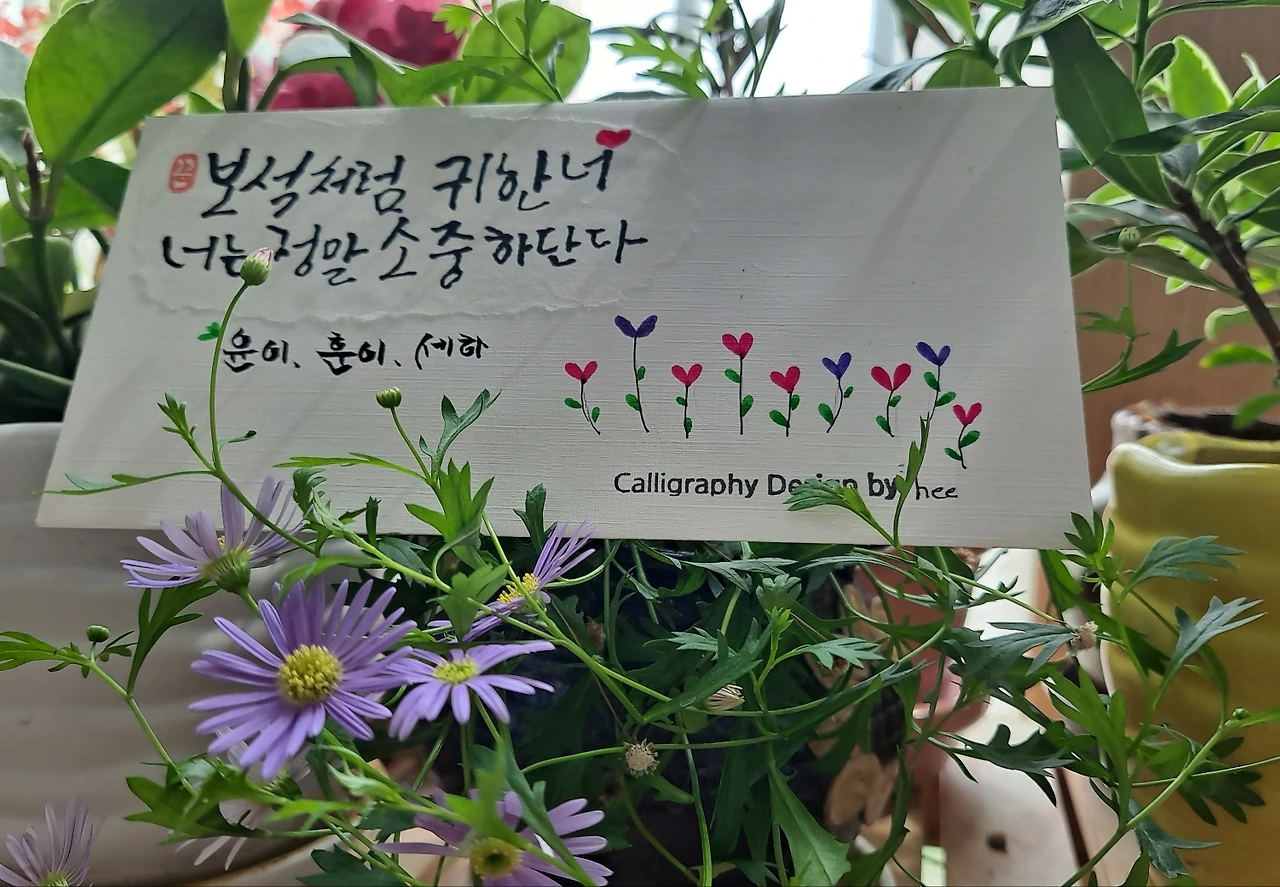 보석처럼 귀한 너
너는 정말 소중하단다
윤이, 훈이, 세하
Calligraphy Design by hee